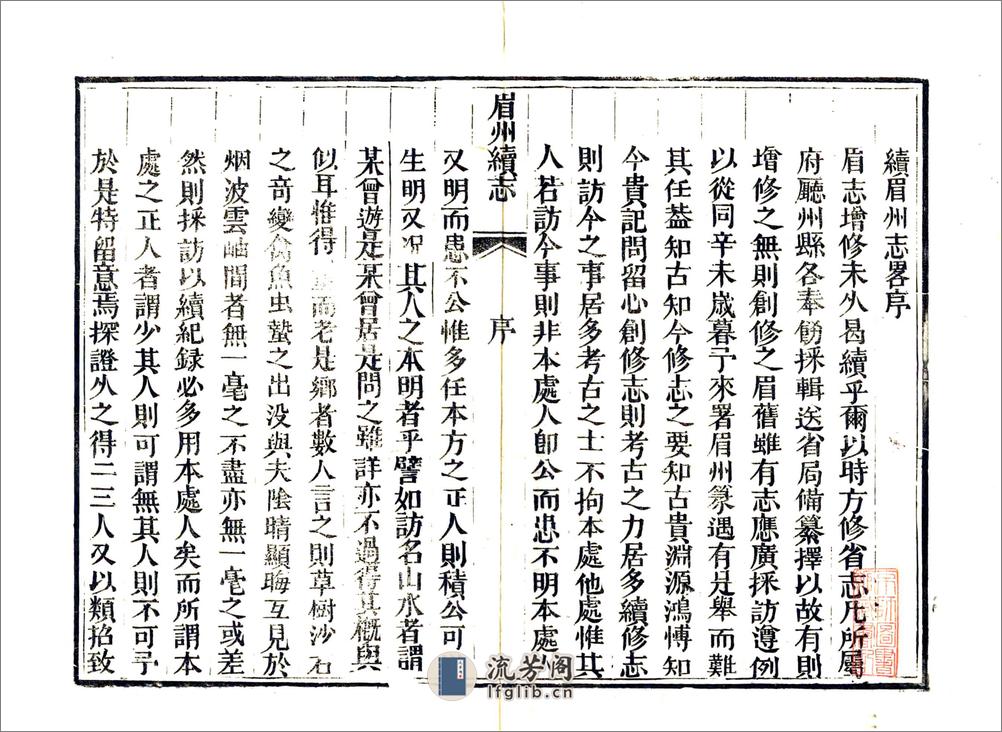 續眉州志畧序
眉志增修未久曷續乎爾以時方修省志凢所屬
府廳州縣各奉飭採輯送省局備纂擇以故有則
增修之無則創修之眉舊雖有志應廣採訪遵例
以從同辛未歲暮予來署眉州篆遇有是舉而難
其任葢知古知今修志之要知古貴淵源鴻博知
今貴記問留心創修志則考古之力居多續修志
則訪今之事居多考古之士不拘本處他處惟其
人若訪今事則非本處人卽公而患不明本處人
眉州續志
序
又明而患不公惟多任本方之正人則積公可
生明又况其人之本明者乎譬如訪名山水者謂
某曾遊是某曾居是問之雖詳亦不過得其概與
似耳惟得 而老是鄉者數人言之則草樹沙石
之竒變禽魚虫蟄之出没與夫陰晴顯晦互見於
烟波雲岫間者無一毫之不盡亦無一毫之或差
然則採訪以續紀録必多用本處人矣而所謂本
處之正人者謂少其人則可謂無其人則不可予
於是特留意焉探證久之得二三人又以類招致
流芳阁
lfglib.cn